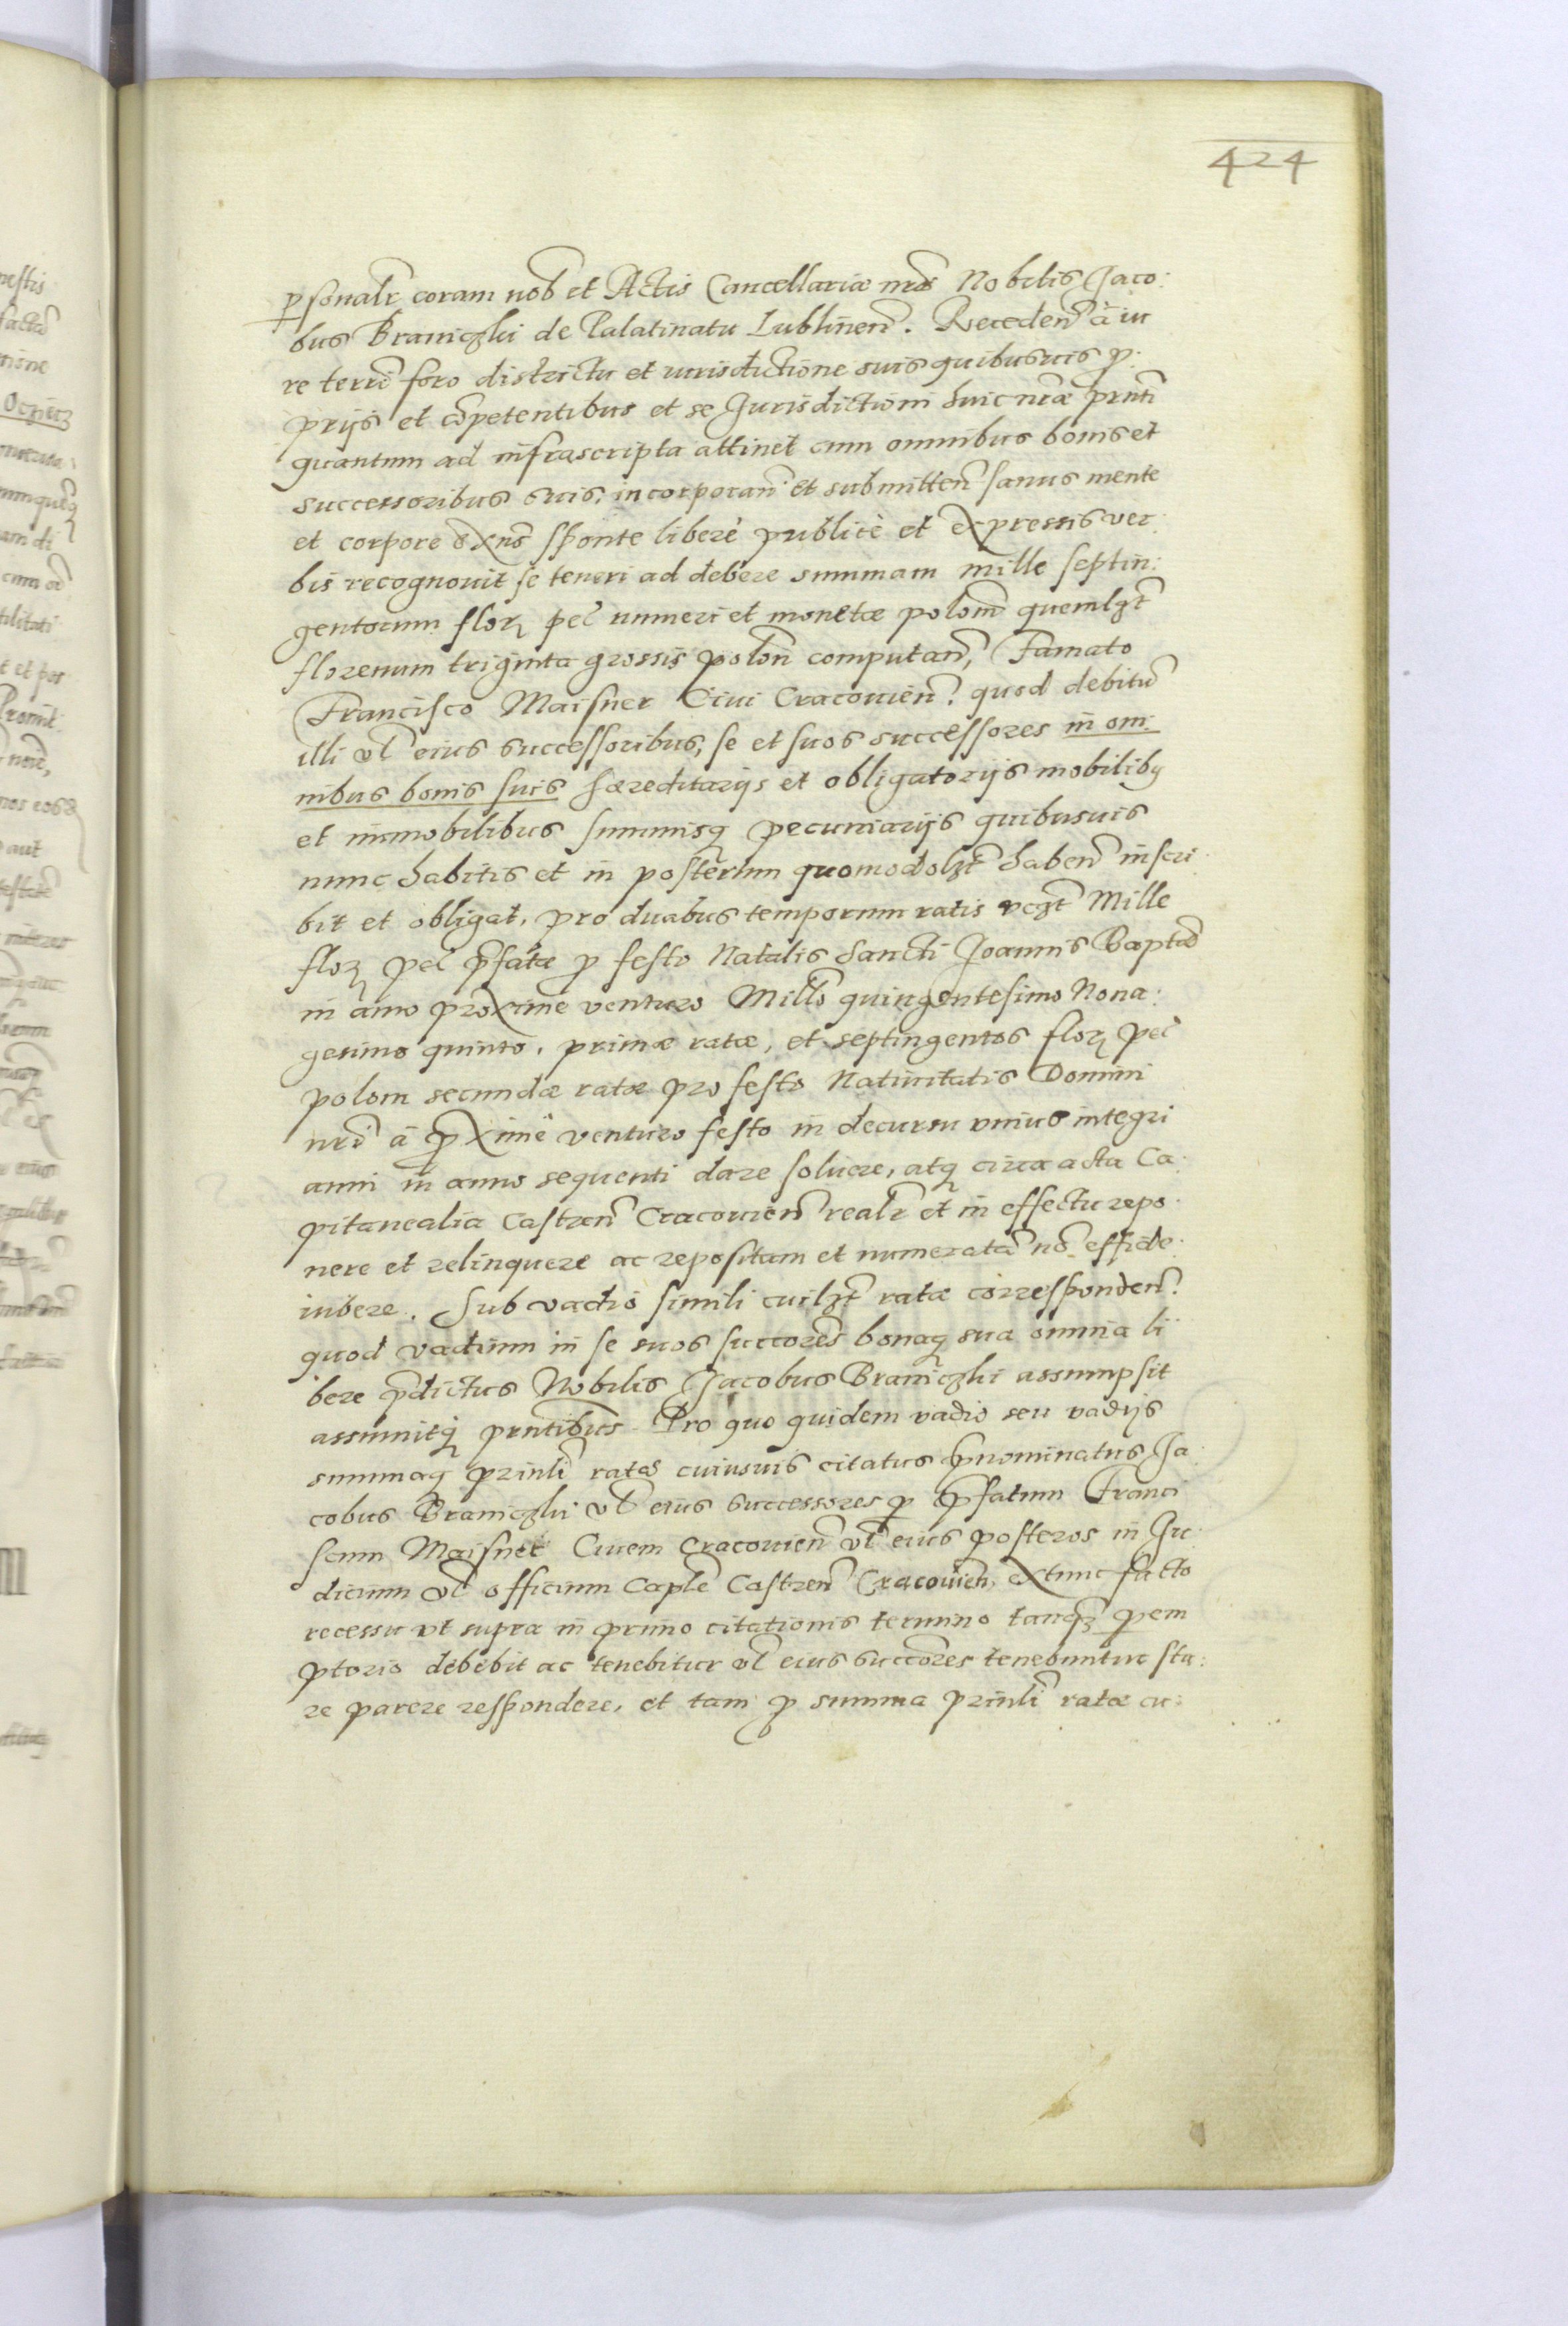 424
psonalr coram nob et Actis Cancellariæ nræ Nobilis Jaco:
bus Braniczki de Palatinatu Lublinen. Receden à iu
re terri foro districtu et iurisdictione suis quibusuis p:
prijs et cōpetentibus et se Jurisdictioni huic nræ prnti
quantum ad infrascripta attinet cum omnibus bonis et
successoribus suis, incorporan et submitten sanus mente
et corpore exns sponte liberè publicè et expressis ver:
bis recognouit se teneri ad debere summam mille septin:
gentorum flor pec numeri et monetæ polon quemlzt
florenum triginta grossis polon computan, Famato
Francisco Maisner Ciui Cracouien. quod debitū
illi vl eius successoribus, se et suos successores in om:
nibus bonis suis hæreditarijs et obligatorijs mobiliby
et immobilibus summisq pecuniarijs quibusuis
nunc habitis et in posterum quomodolzt haben inscri:
bit et obligat, pro duabus temporum ratis vczt Mille
flor pec pfatæ p festo Natalis Sancti Joannis Baptæ
in anno proxime venturo Millo quingentesimo Nona:
gesimo quinto, primæ ratæ, et septingentos flor pec
polon secundæ ratæ pro festo Natiuitatis Domini
nri à pxime venturo festo in decursu vnius integri
anni in anno sequenti dare soluere, atq circa acta Ca:
pitanealia Castren Cracouien realr et in effectu repo:
nere et relinquere ac repositam et numeratā nō effide:
iubere. Sub vadio simili cuilzt ratæ corresponden.
quod vadium in se suos succores bonaq sua omnia li
bere pdictus Nobilis Jacobus Braniczki assumpsit
assumitq prntibus. Pro quo quidem vadio seu vadijs
summaq prinli ratæ cuiusuis citatus pnominatus Ja:
cobus Braniczki vl eius successores p pfatum Franci
scum Maisner Ciuem Cracouien vl eius posteros in Ju:
dicium vl officium Caple Castren Cracouien, extunc facto
recessu vt supra in primo citationis termino tanqz pem
ptorio debebit ac tenebitur vl eius succores tenebuntur sta:
re parere respondere, et tam p summa prinli ratæ cu: